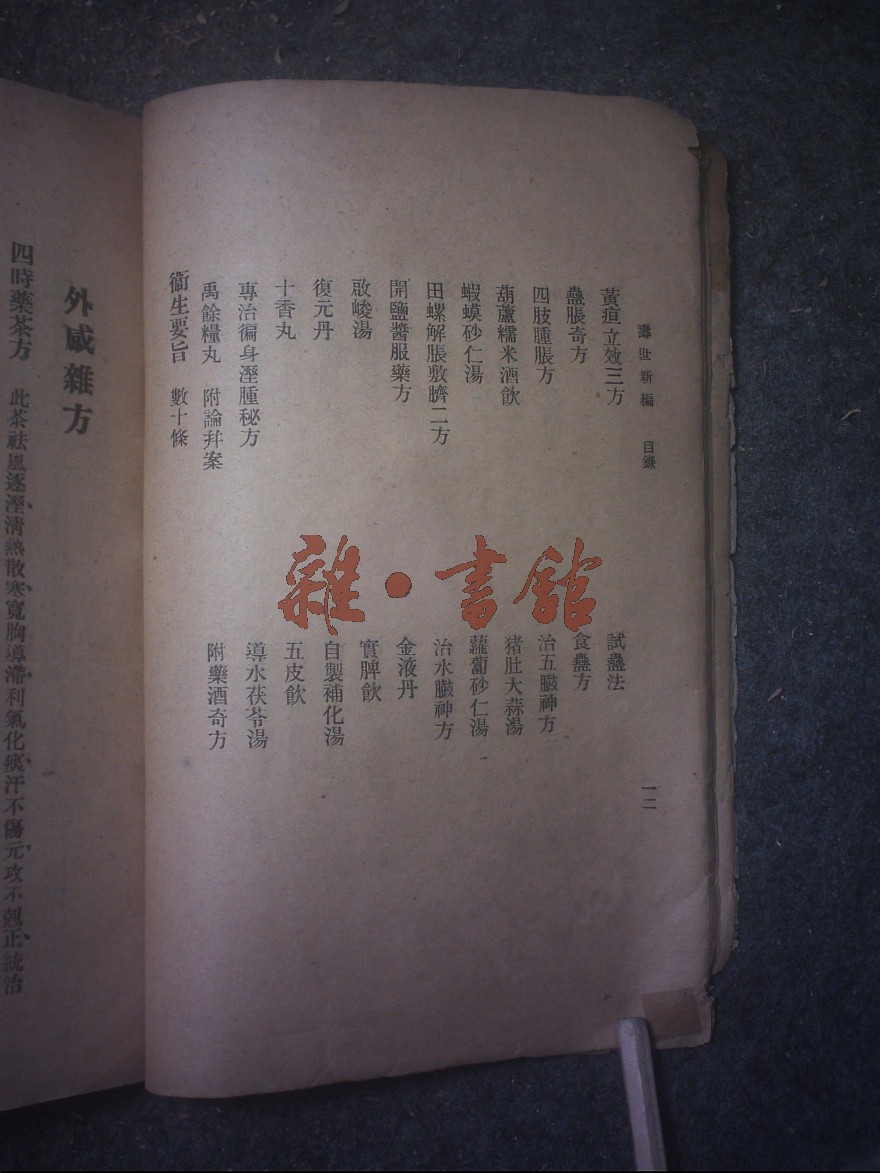 壽世新編 目錄 一二
黃疸立效三方 試蠱法
蠱脹奇方 食蠱方
四肢腫脹方 治五臟神方
葫蘆糯米酒飲 猪肚大蒜湯
蝦蟆砂仁湯 蘿蔔砂仁湯
田螺解脹敷臍二方 治水臟神方
開鹽醬服藥方 金液丹
啟峻湯 實脾飲
復元丹 自製補化湯
十香丸 五皮飲
專治徧身溼腫秘方 導水茯苓湯
禹餘糧丸 附論幷案 附藥酒奇方
衞生要旨 數十條
外感雜方
四時藥茶方 此茶祛風逐溼清熱散寒寬胸導滯利氣化痰汗不傷元攻不剋正統治
雜·書館